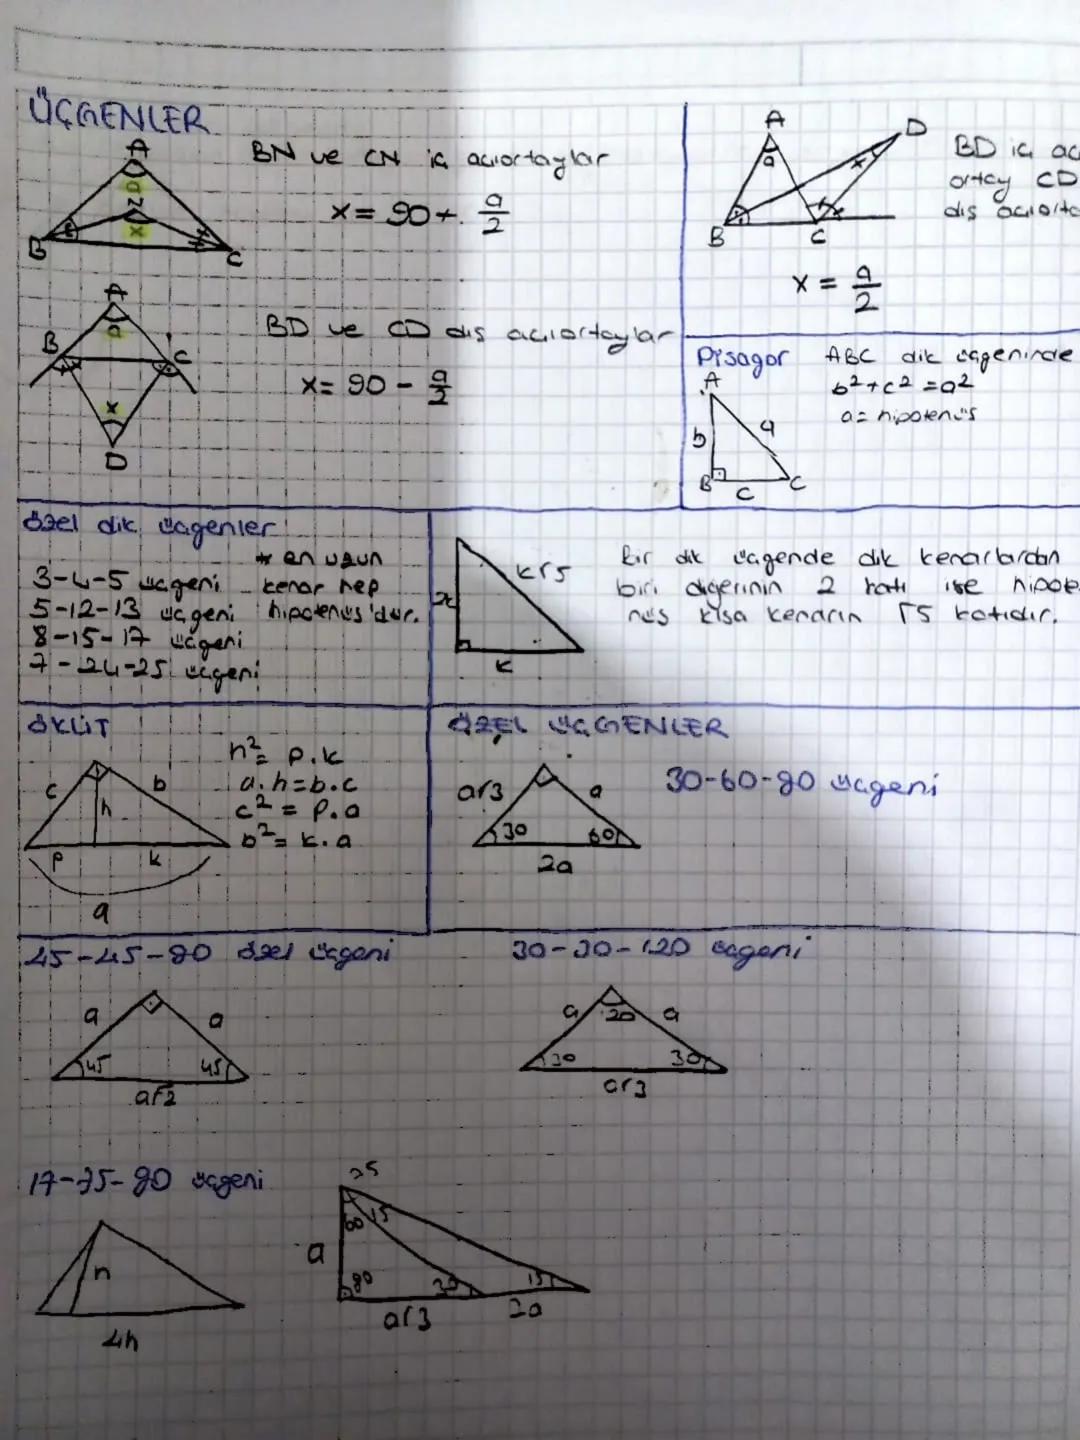 ÜÇGENLER
A
N
a
x
B
C
BN ve CN iç açıortaylar
x = 90 + a/2
A
a
B
C
x
D
BD ve CD dış açıortaylar
x = 90 - a/2
A
a
D
x
B
C
BD iç aç
ortay CD
dış açıorta
x = a/2
Pisagor
ABC dik üçgeninde
b²+c² = a²
a = hipotenüs
A
b
a
B
c
C
özel dik üçgenler
3-4-5 üçgeni
5-12-13 üçgeni
8-15-17 üçgeni
7-24-25 üçgeni
* en uzun
kenar hep
hipotenüs'dür.
k√5
2k
k
Bir dik üçgende dik kenarlardan
biri diğerinin 2 katı ise hipote
nüs kısa kenarın √5 katıdır.
ÖKLİT
c
b
h
p
k
a
h² = p.k
a.h = b.c
c² = p.a
b² = k.a
ÖZEL ÜÇGENLER
30-60-90 üçgeni
a√3
a
30
60
2a
45-45-90 özel üçgeni
a
a
45
45
a√2
30-30-120 üçgeni
a
a
30
30
a√3
üçgeni
h
4h
60
15
a
90
30
15
a√3
2a